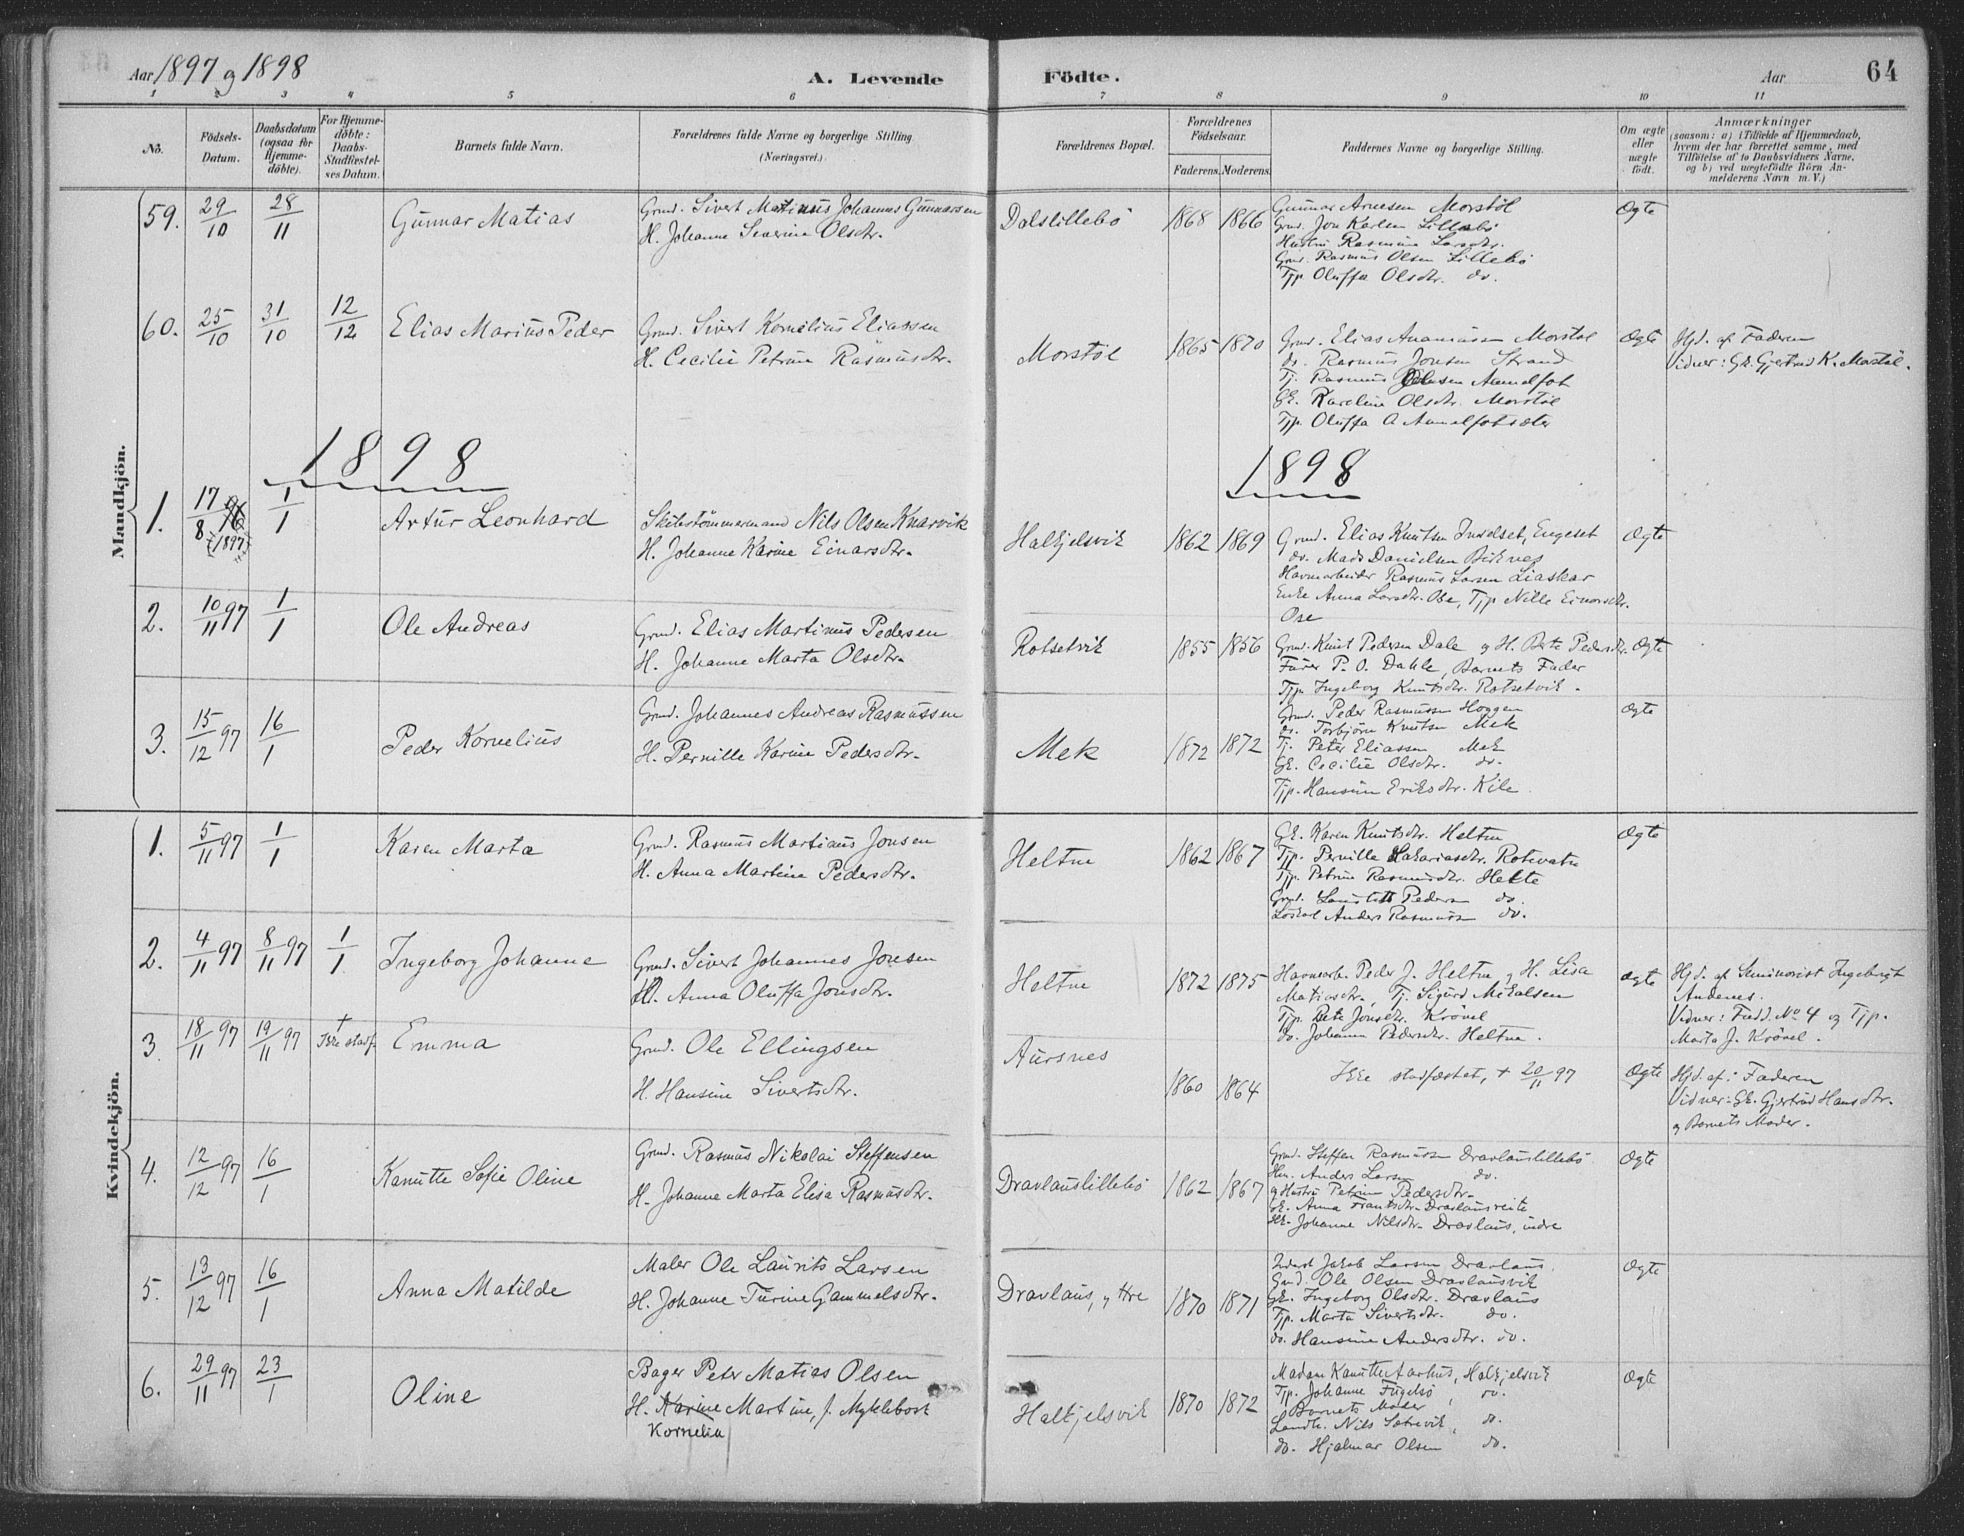 Aar 1897 og 1898
A. Levende Födte.
Aar
64
1 2 3 4 5 6 7 8 9 10 11
No.
Födsels-Datum.
Daabsdatum (ogsaa for Hjemme-döbte).
For Hjemme-döbte: Daabs-Stadfæstel-ses Datum.
Barnets fulde Navn.
Forældrenes fulde Navne og borgerlige Stilling. (Næringsvei.)
Forældrenes Bopæl.
Forældrenes Födselsaar.
Faderens. Moderens.
Faddernes Navne og borgerlige Stilling.
Om ægte eller uægte födt.
Anmærkninger
(saasom: a) i Tilfælde af Hjemmedaab, hvem der har forrettet samme, med Tilföielse af to Daabsvidners Navne, og b) ved uægtefödte Börn An-melderens Navn m. V.)
Mandkjön.
59. 29/10 28/11 Gunnar Matias
Grmd. Sivert Matinus Johannes Gunnarsen
H. Johanne Severine Olsdtr.
Dalslillebö 1868 1866
Gunnar Arnesen Morstöl
Grmd. Jon Karlsen Lillebö
Hustru Rasmine Larsdtr.
Grmd. Rasmus Olsen Lillebö
Tjp. Oluffa Olsdtr. do.
Ægte
60. 25/10 31/10 12/12 Elias Marius Peder
Grmd. Sivert Kornelius Eliassen
H. Cecilie Petrine Rasmusdtr.
Morstöl 1865 1870
Grmd. Elias Ananiassen Morstöl
do. Rasmus Jonsen Strand
Tj. Rasmus Olsen Aamelfot
GK. Karoline Olsdtr. Morstöl
Tjp. Oluffa A Aamelfotsæter
Ægte
Hjd. af Faderen
Vidner: GK. Gjertrud K. Morstöl.
1898
1898
1. 17/8 96 (1897) 1/1 Artur Leonhard
Skibstömmermand Nils Olsen Knarvik
H. Johanne Karine Einarsdtr.
Halkjelsvik 1862 1869
Grmd. Elias Knutsen Indset, Engeset
do. Mads Danielsen Birknes
Havnearbeider Rasmus Larsen Liaskar
Enke Anna Larsdtr. Ose, Tjp. Nille Einarsdtr.
Ose
Ægte
2. 10/11 97 1/1 Ole Andreas
Grmd. Elias Martinus Pedersen
H. Johanne Marta Olsdtr.
Rotsetvik 1855 1856
Grmd. Knut Pedersen Dale og H. Berte Pedersdtr.
Furer P. O. Dahle, Barnets Fader
Tjp. Ingeborg Knutsdtr. Rotsetvik.
Ægte
3. 15/12 97 16/1 Peder Kornelius
Grmd. Johannes Andreas Rasmussen
H. Pernille Karine Pedersdtr.
Mek 1872 1872
Grmd. Peder Rasmussen Hoggen
do. Torbjörn Knutsen Mek
Tj. Peter Eliassen Mek
GK. Cecilie Olsdtr. do.
Tjp. Hansine Eriksdtr. Kile.
Ægte
Kvindekjön.
1. 5/11 97 1/1 Karen Marta
Grmd. Rasmus Martinus Jonsen
H. Anna Martine Pedersdtr.
Heltne 1862 1867
GK. Karen Knutsdtr. Heltne
Tjp. Pernille Sakariasdtr. Rotevatn
Tjp. Petrine Rasmusdtr. Helte
Grmd. Pedersen do.
Löskarl Anders Rasmussen do.
Ægte
2. 4/11 97 8/11 97 1/1 Ingeborg Johanne
Grmd. Sivert Johannes Jonsen
H. Anna Oluffa Jonsdtr.
Heltne 1872 1875
Havnearb. Peder J. Heltne og H. Lisa
Matiasdtr., Tj. Sigurd Mikalsen
Tjp. Berte Jonsdtr. Krövel
do. Johanne Pedersdtr. Heltne.
Ægte
Hjd. af Seminarist Ingebrigt
Andenes.
Vidner: Fadd. No 4 og Tjp.
Marta J. Krövel.
3. 18/11 97 19/11 97 † Ikke stadf. Emma
Grmd. Ole Ellingsen
H. Hansine Sivertsdtr.
Aursnes 1860 1864
Ikke stadfæstet, † 20/11 97
Ægte
Hjd. af: Faderen
Vidner: GK. Gjertrud Hansdtr.
og Barnets Moder.
4. 12/12 97 16/1 Kanutte Sofie Oline
Grmd. Rasmus Nikolai Steffensen
H. Johanne Marta Elisa Rasmusdtr.
Dravlauslillebö 1862 1867
Grmd. Steffen Rasmussen Dravlauslillebö
Anders Larsen do.
og Hustru Petrine Pedersdtr.
GK. Anna Frantsdtr. Dravlausreite
GK. Johanne Nilsdtr. Dravlaus, indre
Ægte
5. 13/12 97 16/1 Anna Matilde
Maler Ole Laurits Larsen
H. Johanne Turine Gammelsdtr.
Dravlaus, ytre 1870 1871
Jakob Larsen Dravlaus
Grmd. Ole Olsen Dravlausvik
GK. Ingeborg Olsdtr. Dravlaus
Tjp. Marta Sivertsdtr. do.
do. Hansine Andersdtr. do.
Ægte
6. 29/11 97 23/1 Oline
Bager Peter Matias Olsen
H. Karine Martine, f. Myklebost
Kornelia
Halkjelsvik 1870 1872
Madam Kanutte Aarhus, Halkjelsvik
Tjp. Johanne Fugelsö, do.
Barnets Moder
Landh. Nils Sætrevik, do.
do. Hjalmar Olsen do.
Ægte